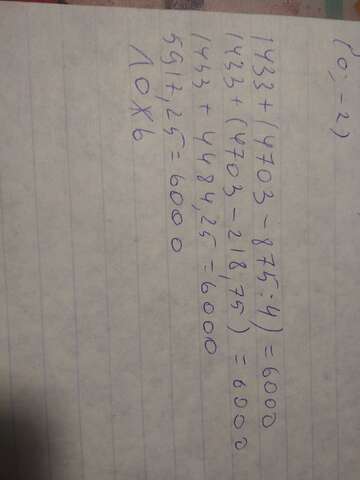 (0; -2)
1433 + (4703 - 875:4) = 6000
1433 + (4703 - 218,75) = 6000
1433 + 4484,25 = 6000
5917,25 = 6000
ЛОЖЬ